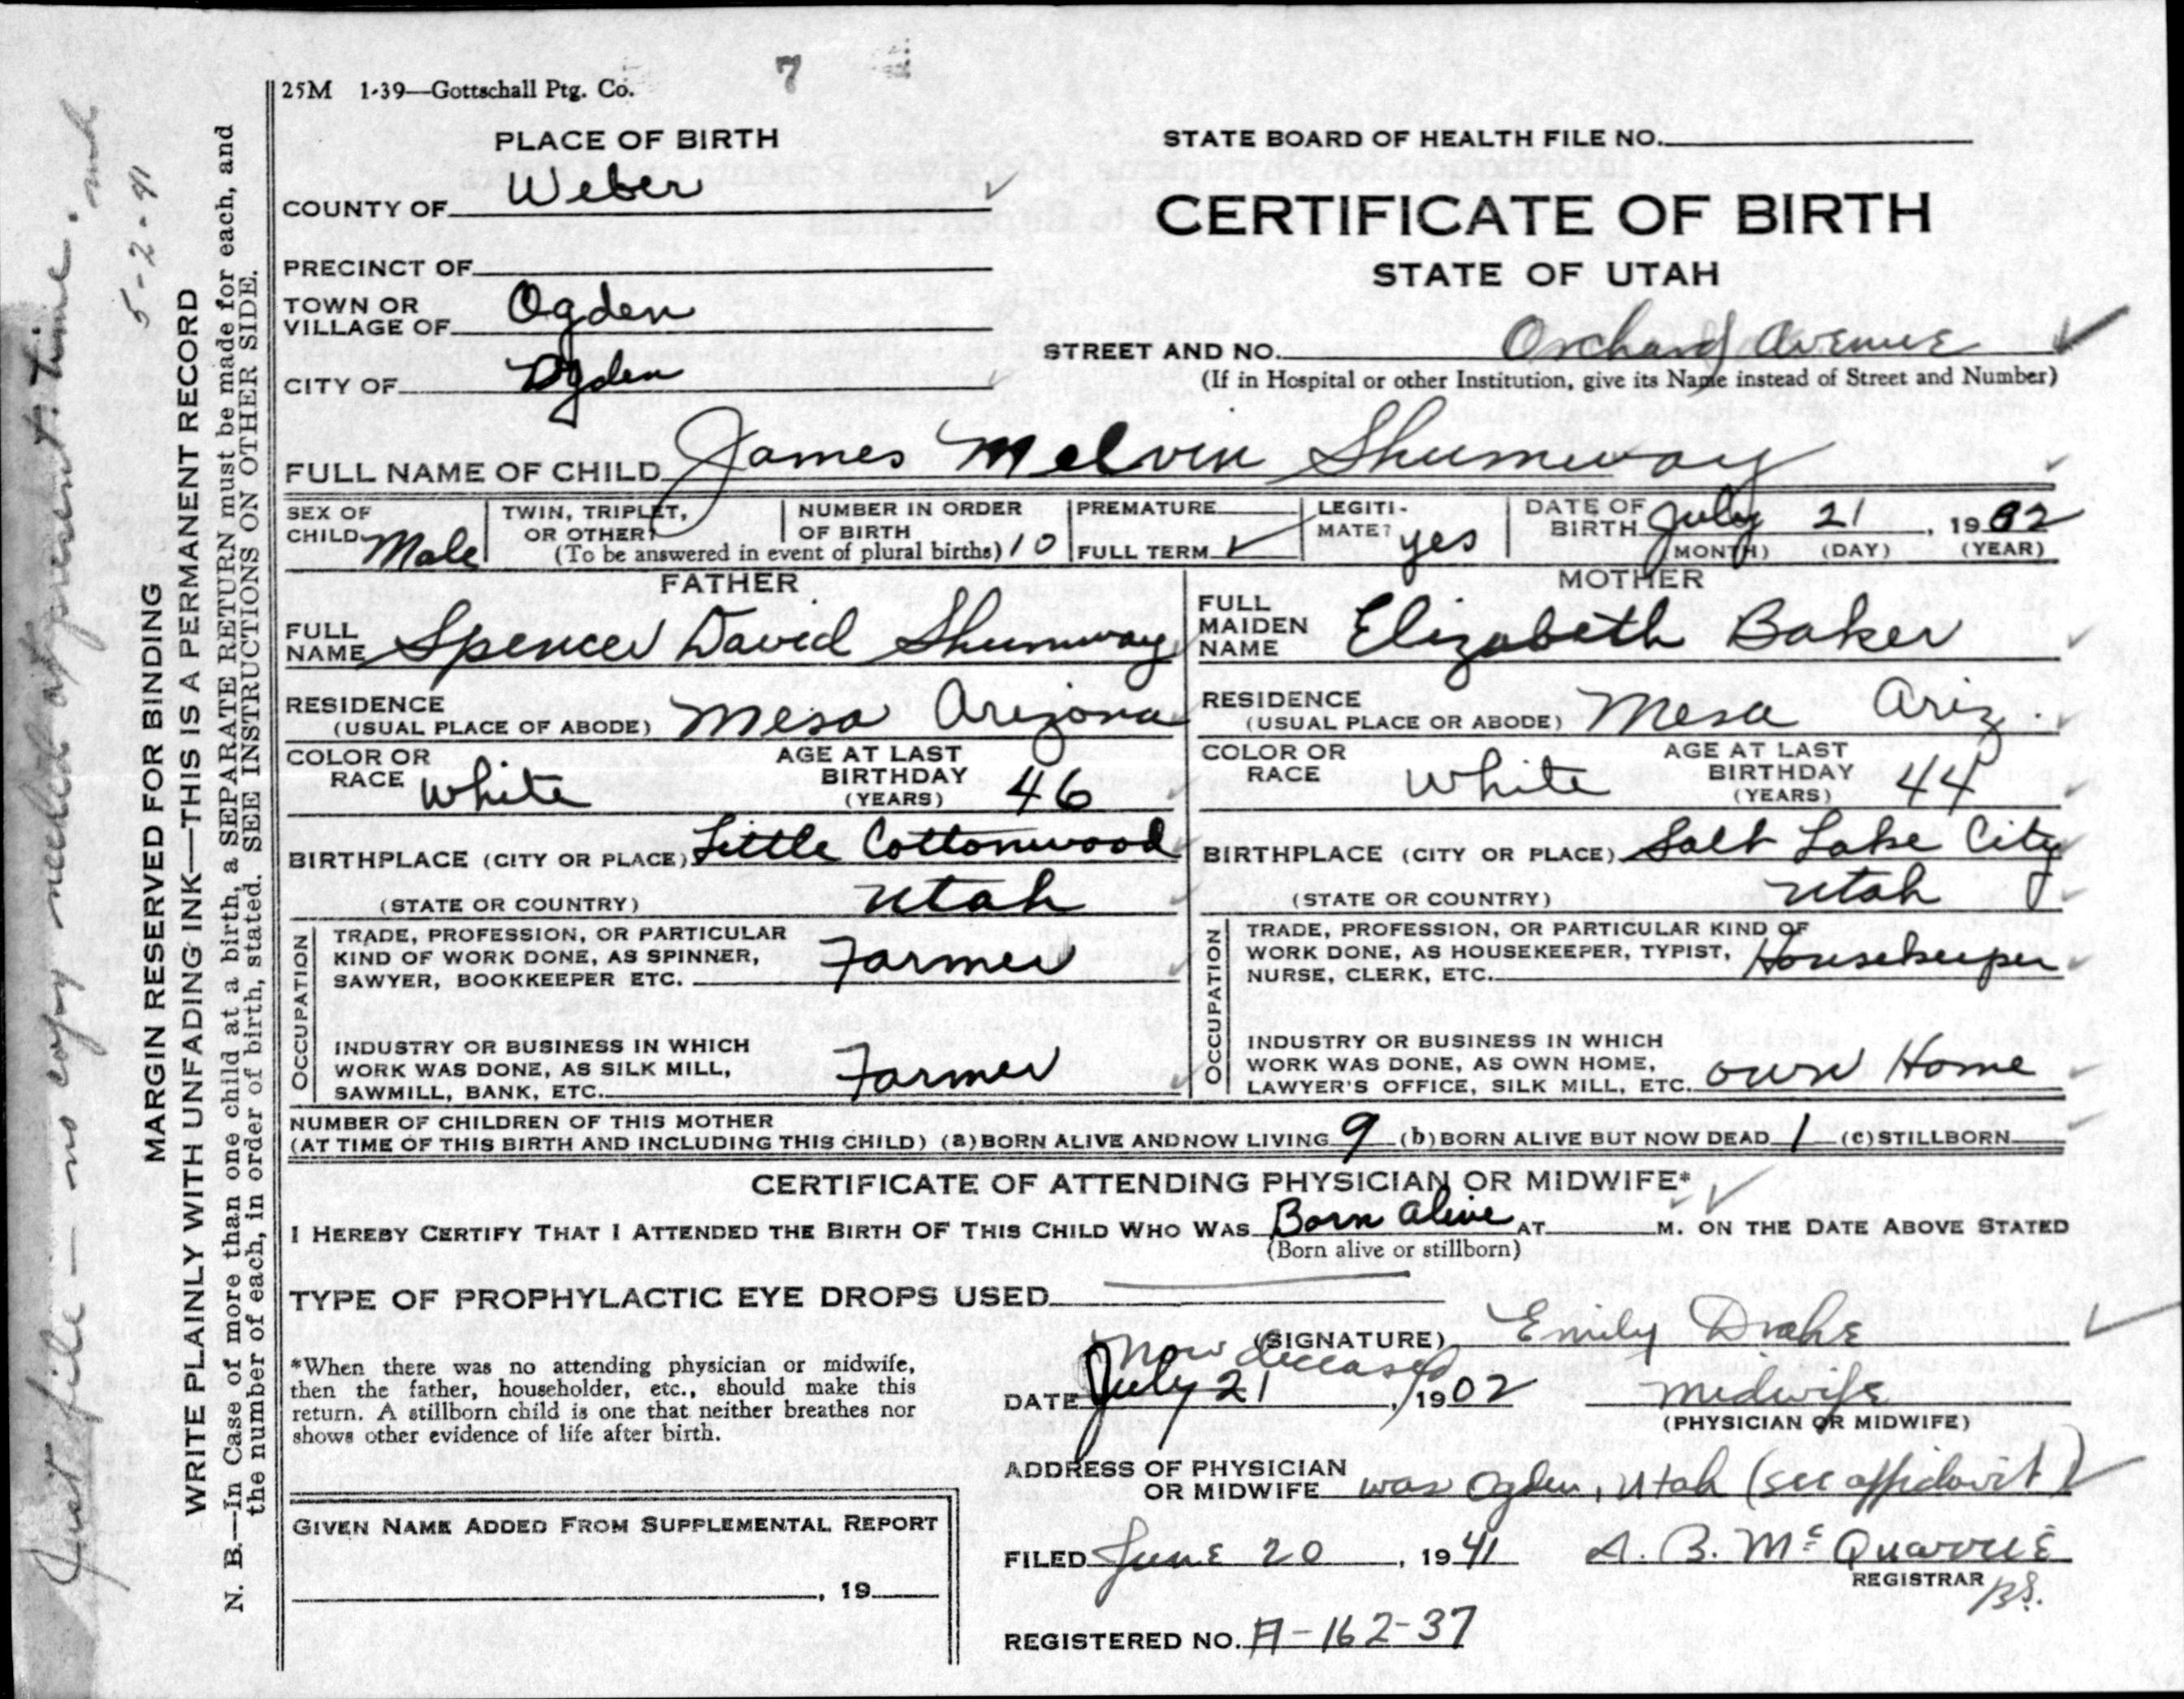 7
25M 1-39—Gottschall Ptg. Co.
PLACE OF BIRTH
COUNTY OF Weber
PRECINCT OF
TOWN OR VILLAGE OF Ogden
CITY OF Ogden
STATE BOARD OF HEALTH FILE NO.
CERTIFICATE OF BIRTH
STATE OF UTAH
STREET AND NO. Orchard Avenue
(If in Hospital or other Institution, give its Name instead of Street and Number)
FULL NAME OF CHILD James Melvin Shumway
SEX OF CHILD Male
TWIN, TRIPLET, OR OTHER?
NUMBER IN ORDER OF BIRTH 10
(To be answered in event of plural births)
PREMATURE
FULL TERM ✓
LEGITIMATE? yes
DATE OF BIRTH July 21, 1902
(MONTH) (DAY) (YEAR)
FATHER
FULL NAME Spencer David Shumway
RESIDENCE
(USUAL PLACE OF ABODE) Mesa Arizona
COLOR OR RACE White
AGE AT LAST BIRTHDAY (YEARS) 46
BIRTHPLACE (CITY OR PLACE) Little Cottonwood
(STATE OR COUNTRY) Utah
OCCUPATION
TRADE, PROFESSION, OR PARTICULAR
KIND OF WORK DONE, AS SPINNER,
SAWYER, BOOKKEEPER ETC. Farmer
INDUSTRY OR BUSINESS IN WHICH
WORK WAS DONE, AS SILK MILL,
SAWMILL, BANK, ETC. Farmer
MOTHER
FULL MAIDEN NAME Elizabeth Baker
RESIDENCE
(USUAL PLACE OR ABODE) Mesa Ariz.
COLOR OR RACE White
AGE AT LAST BIRTHDAY (YEARS) 44
BIRTHPLACE (CITY OR PLACE) Salt Lake City
(STATE OR COUNTRY) Utah
OCCUPATION
TRADE, PROFESSION, OR PARTICULAR KIND OF
WORK DONE, AS HOUSEKEEPER, TYPIST,
NURSE, CLERK, ETC. Housekeeper
INDUSTRY OR BUSINESS IN WHICH
WORK WAS DONE, AS OWN HOME,
LAWYER'S OFFICE, SILK MILL, ETC. own Home
NUMBER OF CHILDREN OF THIS MOTHER
(AT TIME OF THIS BIRTH AND INCLUDING THIS CHILD) (a) BORN ALIVE AND NOW LIVING 9 (b) BORN ALIVE BUT NOW DEAD 1 (c) STILLBORN
CERTIFICATE OF ATTENDING PHYSICIAN OR MIDWIFE*
I HEREBY CERTIFY THAT I ATTENDED THE BIRTH OF THIS CHILD WHO WAS Born alive AT M. ON THE DATE ABOVE STATED
(Born alive or stillborn)
TYPE OF PROPHYLACTIC EYE DROPS USED
*When there was no attending physician or midwife,
then the father, householder, etc., should make this
return. A stillborn child is one that neither breathes nor
shows other evidence of life after birth.
(SIGNATURE) Emily Drake
now deceased
DATE July 21, 1902 Midwife
(PHYSICIAN OR MIDWIFE)
ADDRESS OF PHYSICIAN
OR MIDWIFE was Ogden, Utah (see affidavit)
GIVEN NAME ADDED FROM SUPPLEMENTAL REPORT
, 19
FILED June 20, 1941 A. B. McQuarrie
REGISTRAR
BS.
REGISTERED NO. A-162-37
Just file — no copy needed at present time.
5-2-41
MARGIN RESERVED FOR BINDING
WRITE PLAINLY WITH UNFADING INK—THIS IS A PERMANENT RECORD
N. B.—In Case of more than one child at a birth, a SEPARATE RETURN must be made for each, and
the number of each, in order of birth, stated. SEE INSTRUCTIONS ON OTHER SIDE.